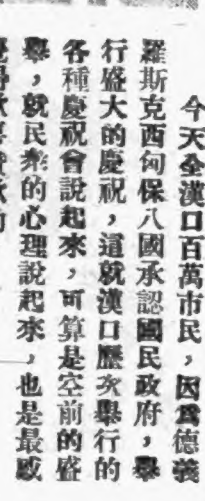 今天全漢口百萬市民，因爲德義
羅斯克西匈保八國承認國民政府，舉
行盛大的慶祝，這就漢口歷次舉行的
各種慶祝會說起來，可算是空前的盛
舉，就民衆的心理說起來，也是最感